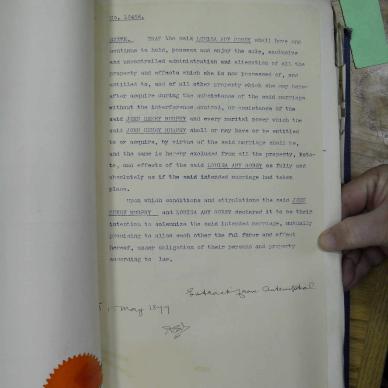 No. 10456.
THAT the said LOUISA AMY
shall have and
continue to hold, possess and enjoy the sole, exclusive
and uncontrolled administration and alienation of all the
property and effects which she now possessed of, and
entitled to, and of all other property which she may here-
after acquire during the subsistence of the said marriage
without the interference control, or assistance of the
said JOHN HENRY MURPHY and every marital power which the
said JOHN HENRY MURPHY shall or may have or be entitled
to or acquire, by virtue of the said marriage shall be,
and the same is hereby excluded from all the property, Esta-
te, and effects of the said LOUISA AMY
as fully and
absolutely as if the said intended marriage had taken
place.
Upon which conditions and stipulations the said JOHN
HENRY MURPHY and LOUISA AMY
declared it to be their
intention to solemnize the said intended marriage, mutually
promising to allow each other the full force and effect
hereof, under obligation of their persons and property
according to law.
Extract from Antenuptial
May 1899